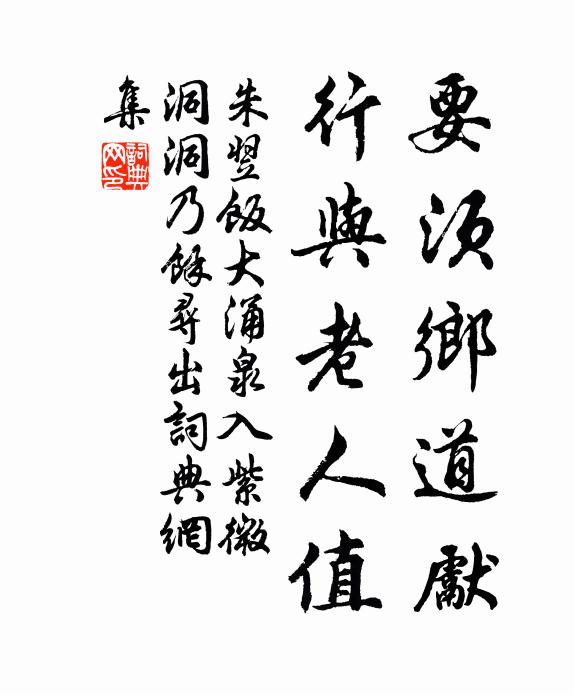 要須鄉道獻
行與老人值
朱翌飯大涌泉入紫微
洞洞乃餘尋出詞典網
集
詞典网印